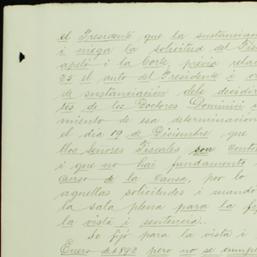 el Presidente que la sustancian
i niega la solicitud del Fis
apeló i la Corte, previa rela
25 el auto del Presidente i o
de sustanciación debe decidir
tes de los Doctores Dominici
miento de esa determinacion
el dia 19 de Diciembre, que
llos Señores Fiscales son conte
i que no hai fundamento
curso de la Causa, por lo
aquellas solicitudes i mando
la sala plena para la fij
la vista i sentencia.
Se fijó para la vista i
Enero de 1892 pero no se cumpl